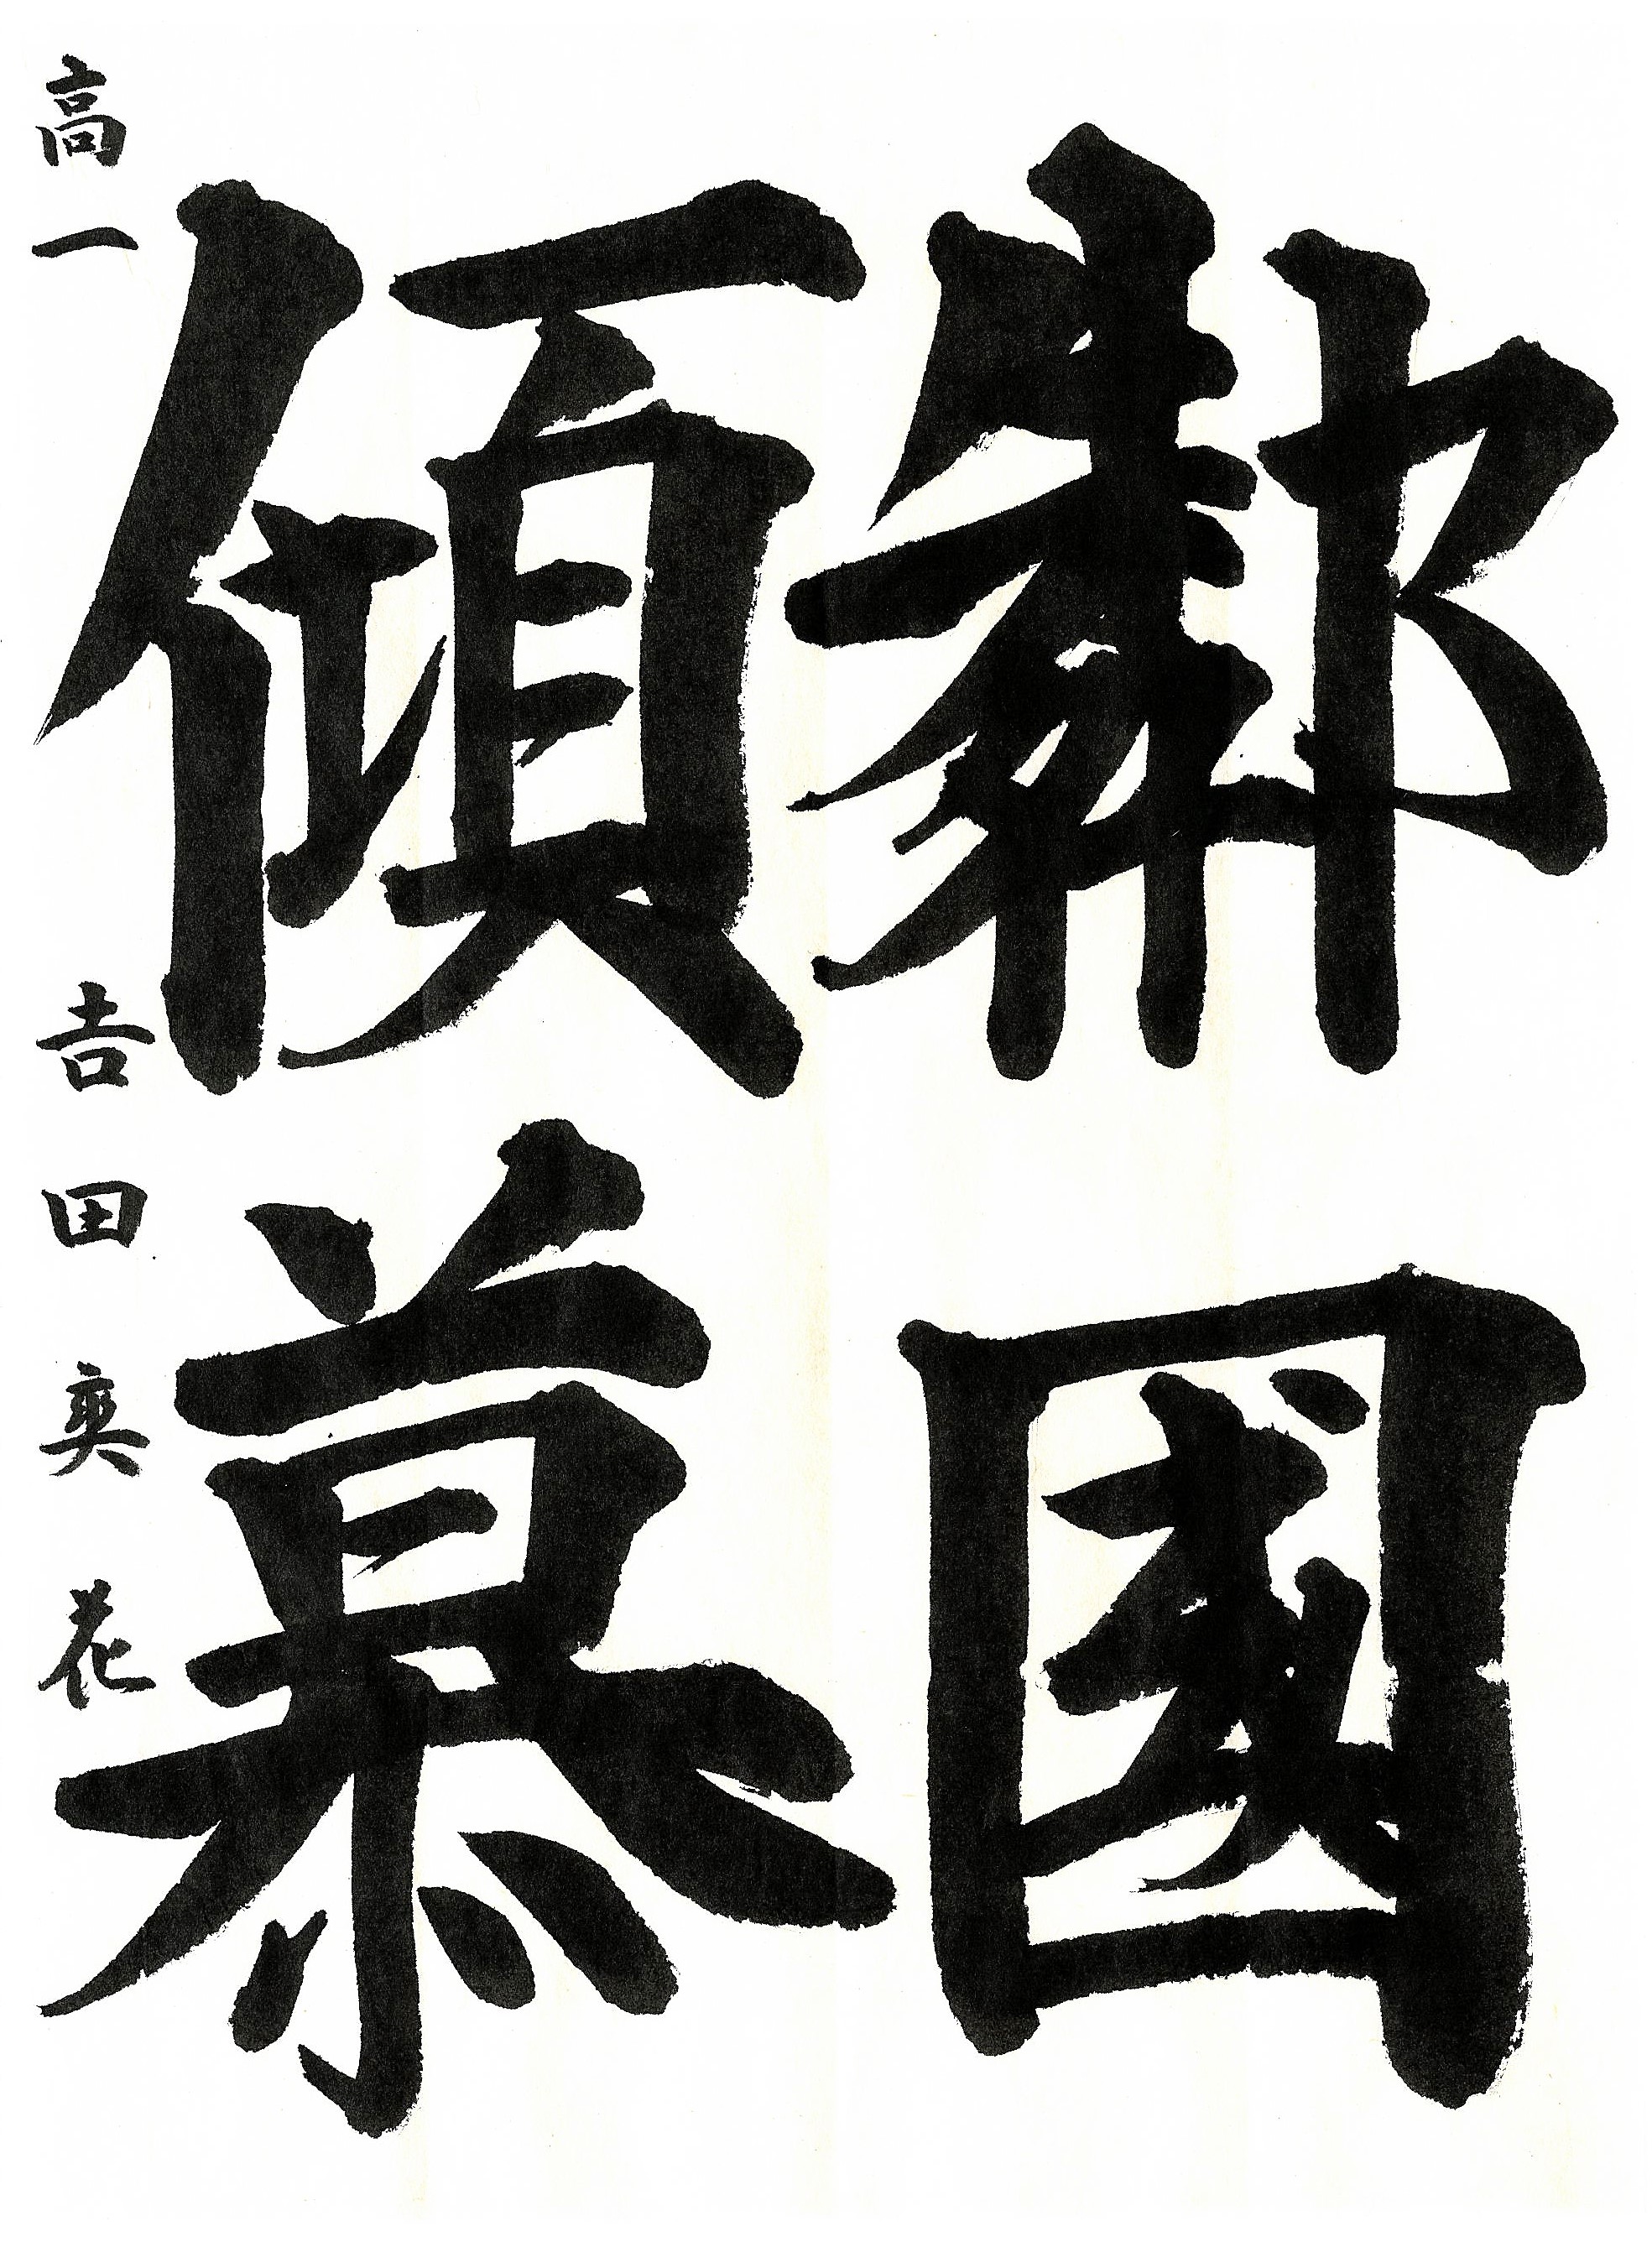 鄰國
傾慕
高一 吉田奕花